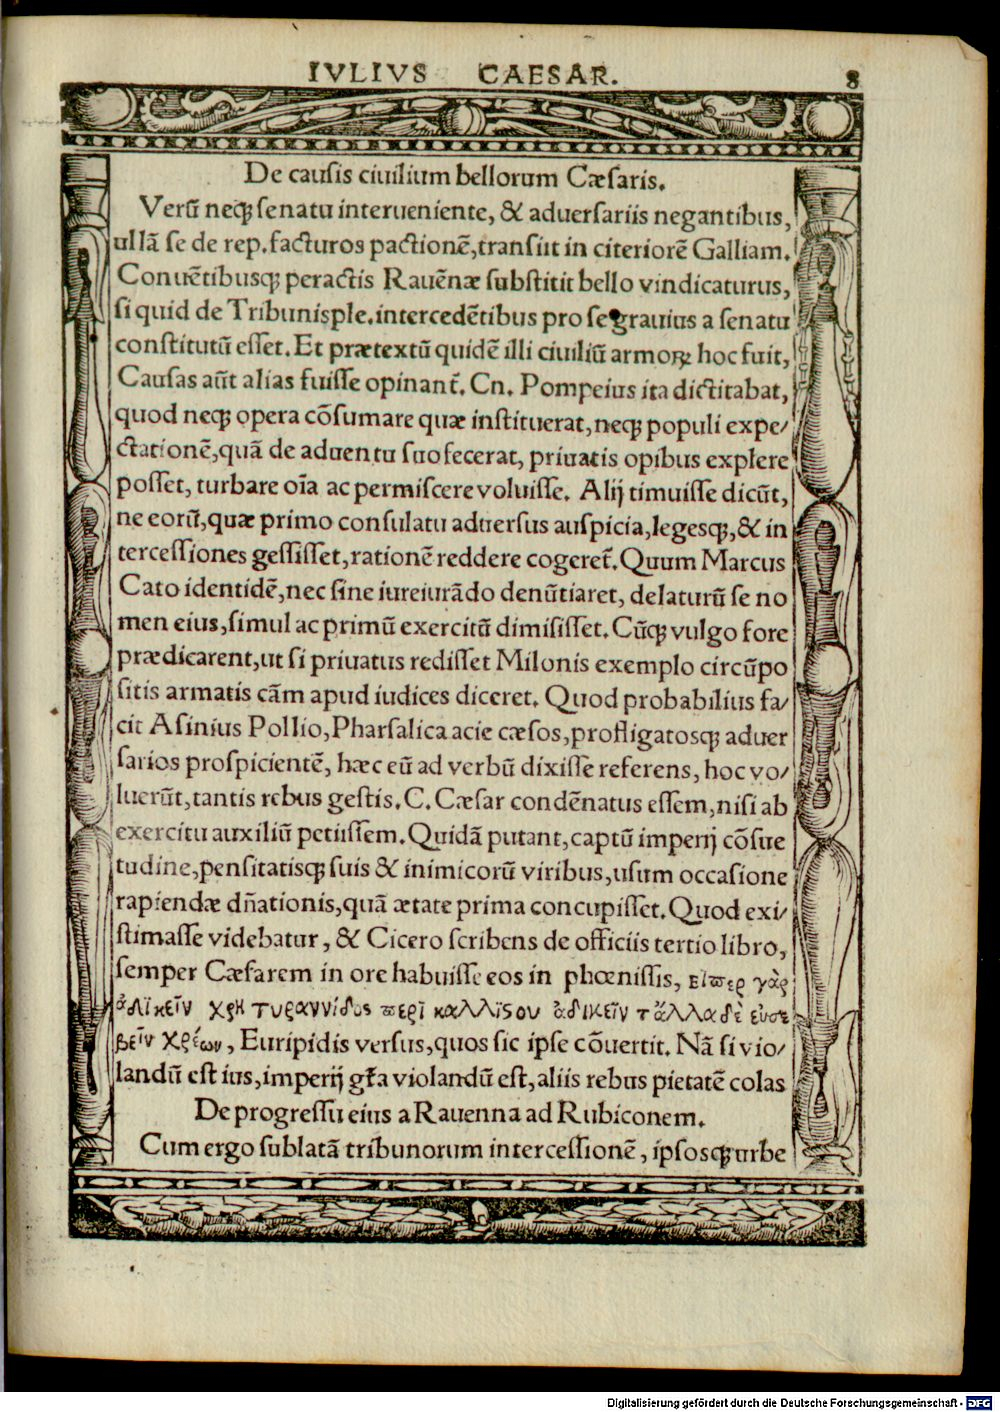 IVLIVS CAESAR. 8
De causis ciuilium bellorum Cæsaris.
Verũ neqꝫ senatu interueniente, & aduersariis negantibus,
ullã se de rep. facturos pactionẽ, transiit in citeriorẽ Galliam.
Conuẽtibusqꝫ peractis Rauẽnæ substitit bello vindicaturus,
si quid de Tribunis ple. intercedẽtibus pro se grauius a senatu
constitutũ esset. Et prætextũ quidẽ illi ciuiliũ armoꝝ hoc fuit,
Causas aũt alias fuisse opinant̃. Cn. Pompeius ita dictitabat,
quod neqꝫ opera cõsumare quæ instituerat, neqꝫ populi expe/
ctationẽ, quã de aduentu suo fecerat, priuatis opibus explere
posset, turbare oĩa ac permiscere voluisse. Alij timuisse dicũt,
ne eorũ, quæ primo consulatu aduersus auspicia, legesqꝫ, & in
tercessiones gessisset, rationẽ reddere cogeret̃. Quum Marcus
Cato identidẽ, nec sine iureiurãdo denũtiaret, delaturũ se no
men eius, simul ac primũ exercitũ dimisisset. Cũqꝫ vulgo fore
prædicarent, ut si priuatus redisset Milonis exemplo circũpo
sitis armatis cãm apud iudices diceret. Quod probabilius fa/
cit Asinius Pollio, Pharsalica acie cæsos, profligatosqꝫ aduer
sarios prospicientẽ, hæc eũ ad verbũ dixisse referens, hoc vo/
luerũt, tantis rebus gestis. C. Cæsar condẽnatus essem, nisi ab
exercitu auxiliũ petiissem. Quidã putant, captũ imperij cõsue
tudine, pensitatisqꝫ suis & inimicorũ viribus, usum occasione
rapiendæ dñationis, quã ætate prima concupisset. Quod exi/
stimasse videbatur, & Cicero scribens de officiis tertio libro,
semper Cæsarem in ore habuisse eos in phœnissis, εἴπερ γὰρ
ἀδικεῖν χρὴ τυραννίδος περὶ καλλίϛου ἀδικεῖν τἄλλα δὲ εὐσε
βεῖν χρέων, Euripidis versus, quos sic ipse cõuertit. Nã si vio/
landũ est ius, imperij gr̃a violandũ est, aliis rebus pietatẽ colas
De progressu eius a Rauenna ad Rubiconem.
Cum ergo sublatã tribunorum intercessionẽ, ipsosqꝫ urbe
Digitalisierung gefördert durch die Deutsche Forschungsgemeinschaft - DFG